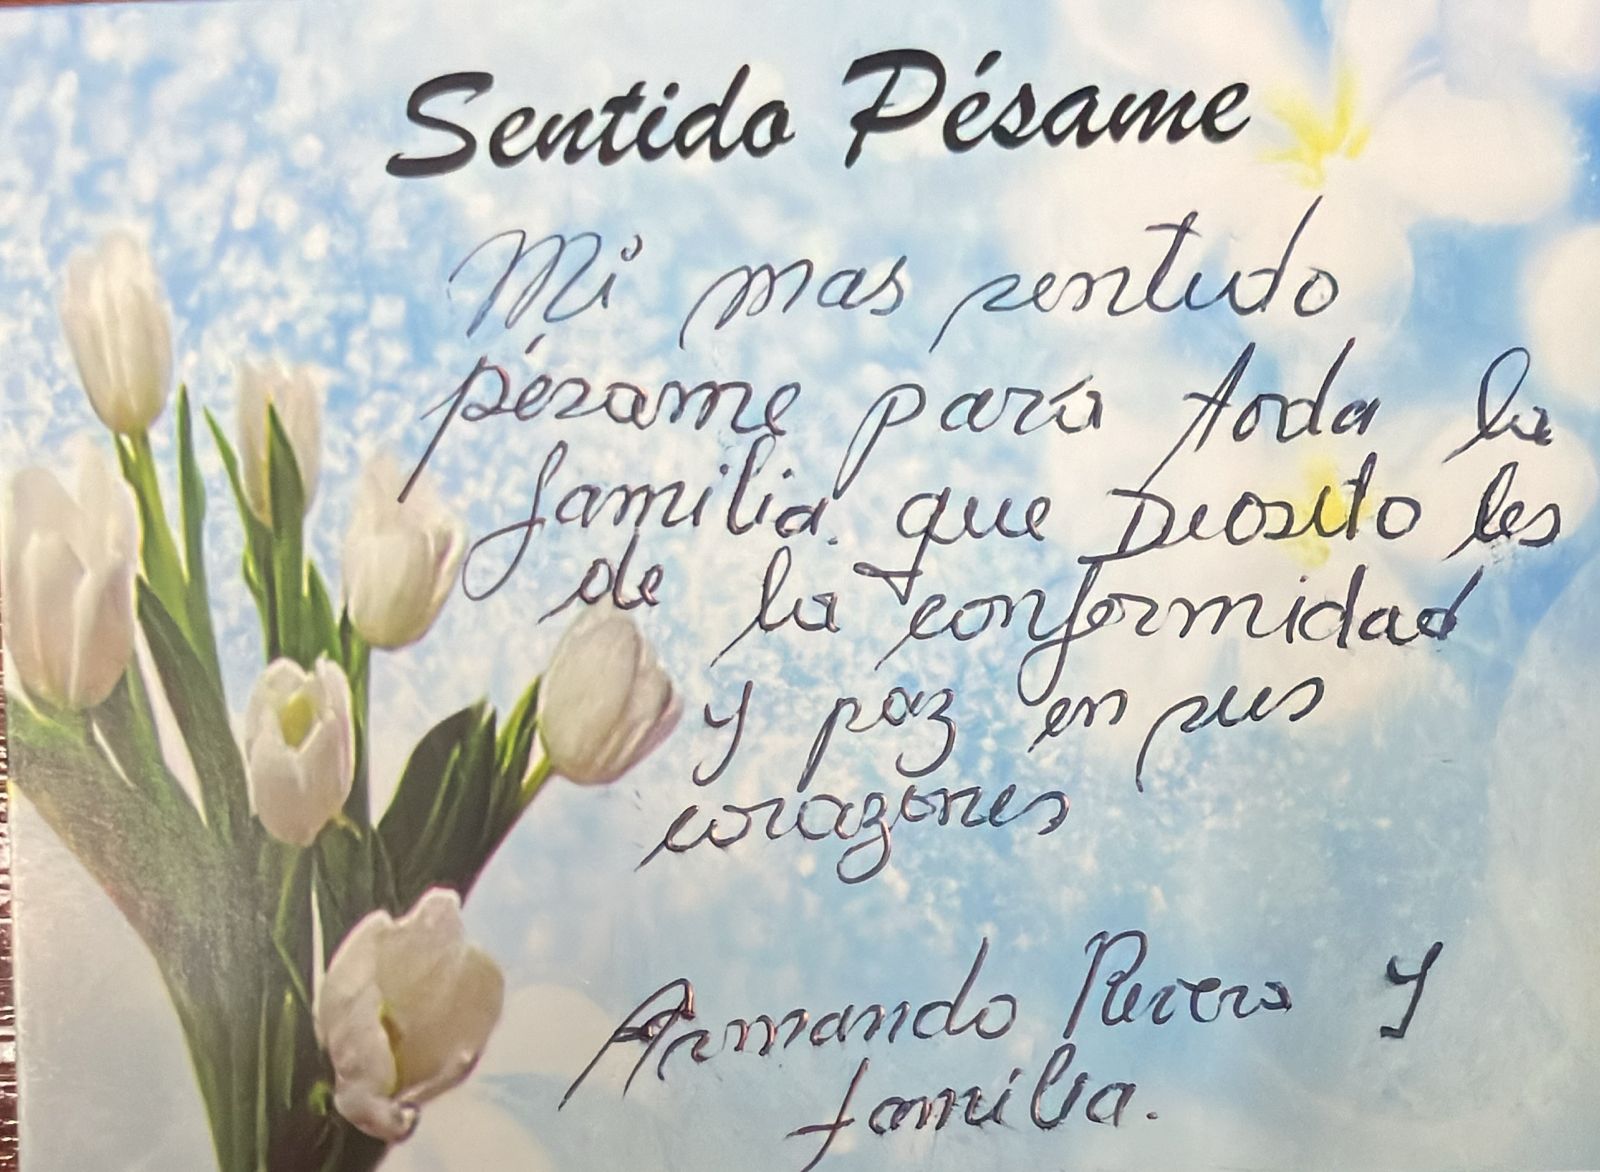 Sentido Pésame
Mi mas sentido
pésame para toda la
familia. que Diosito les
de la conformidad
y paz en sus
corazones
Armando Rivera y
familia.